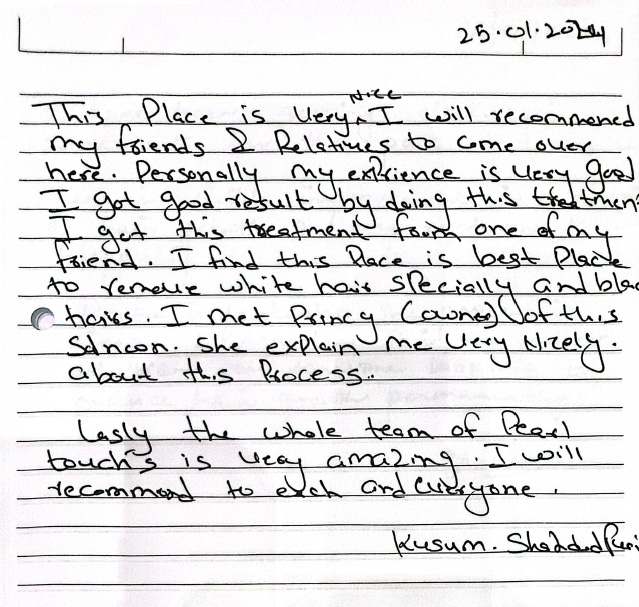 25.01.2024
This Place is Very Nice I will recommened
my friends & Relatives to come over
here. Personally my exprience is Very good
I got good result by doing this treatmen
I got this treatment from one of my
friend. I find this Place is best Place
to remove white hair specially and blac
hairs. I met Princy (owner) of this
She explain me Very Nicely.
about this Process..
Lasly the whole team of Pearl
touch's is very amazing. I will
recommend to each and everyone.
Kusum.